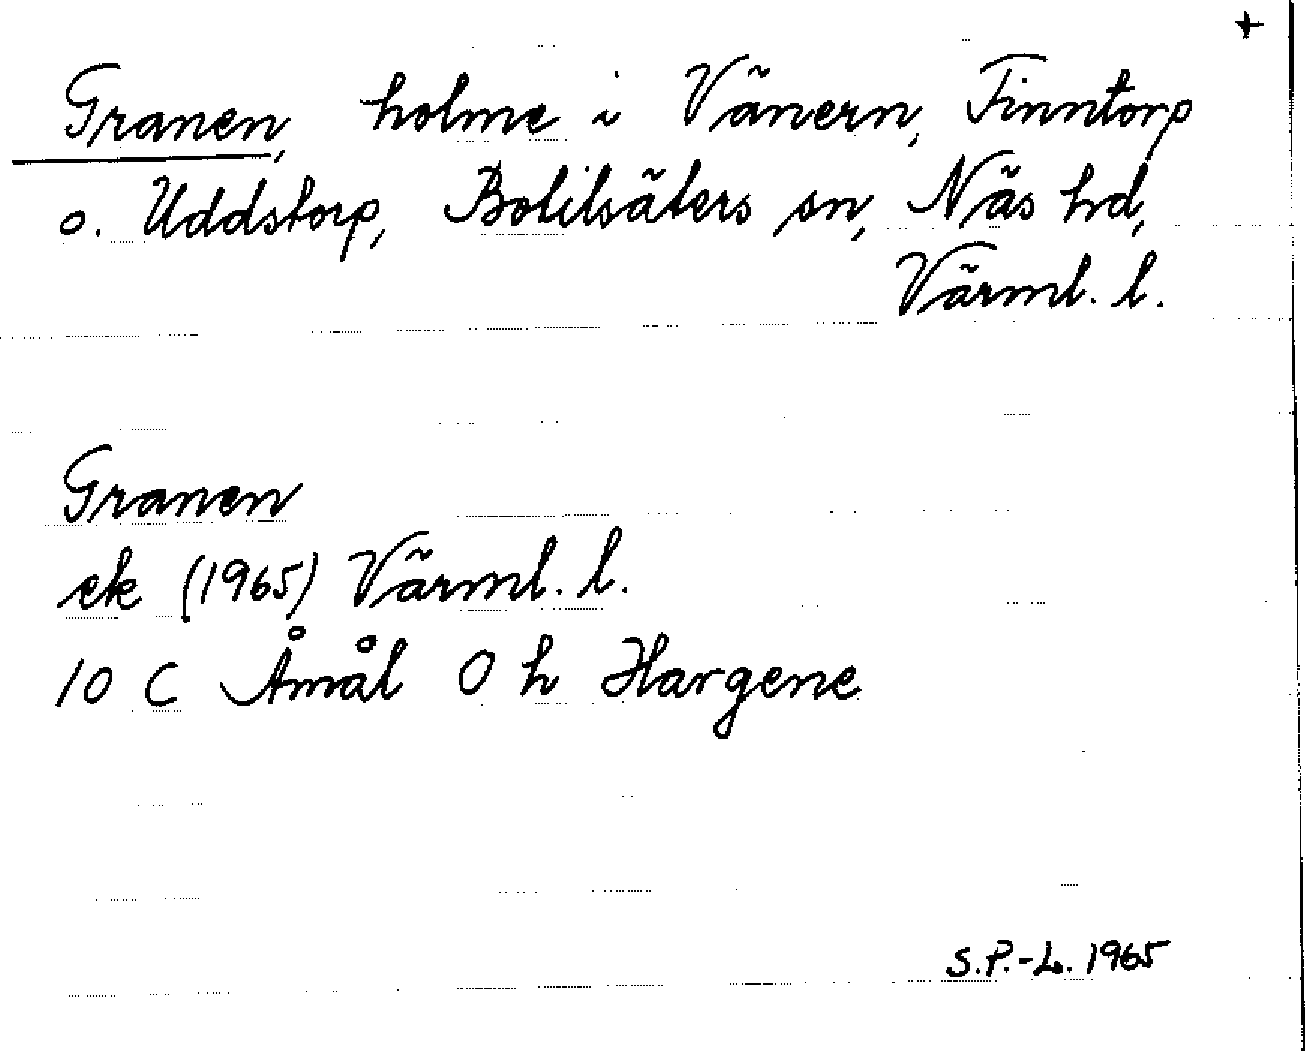 +
Granen, holme i Vänern, Finntorp
o. Uddstorp, Botilsäters sn, Näs hd,
Värml. l.
Granen
ek (1965) Värml. l.
10 C Åmål O h Hargene
S.P.-L. 1965